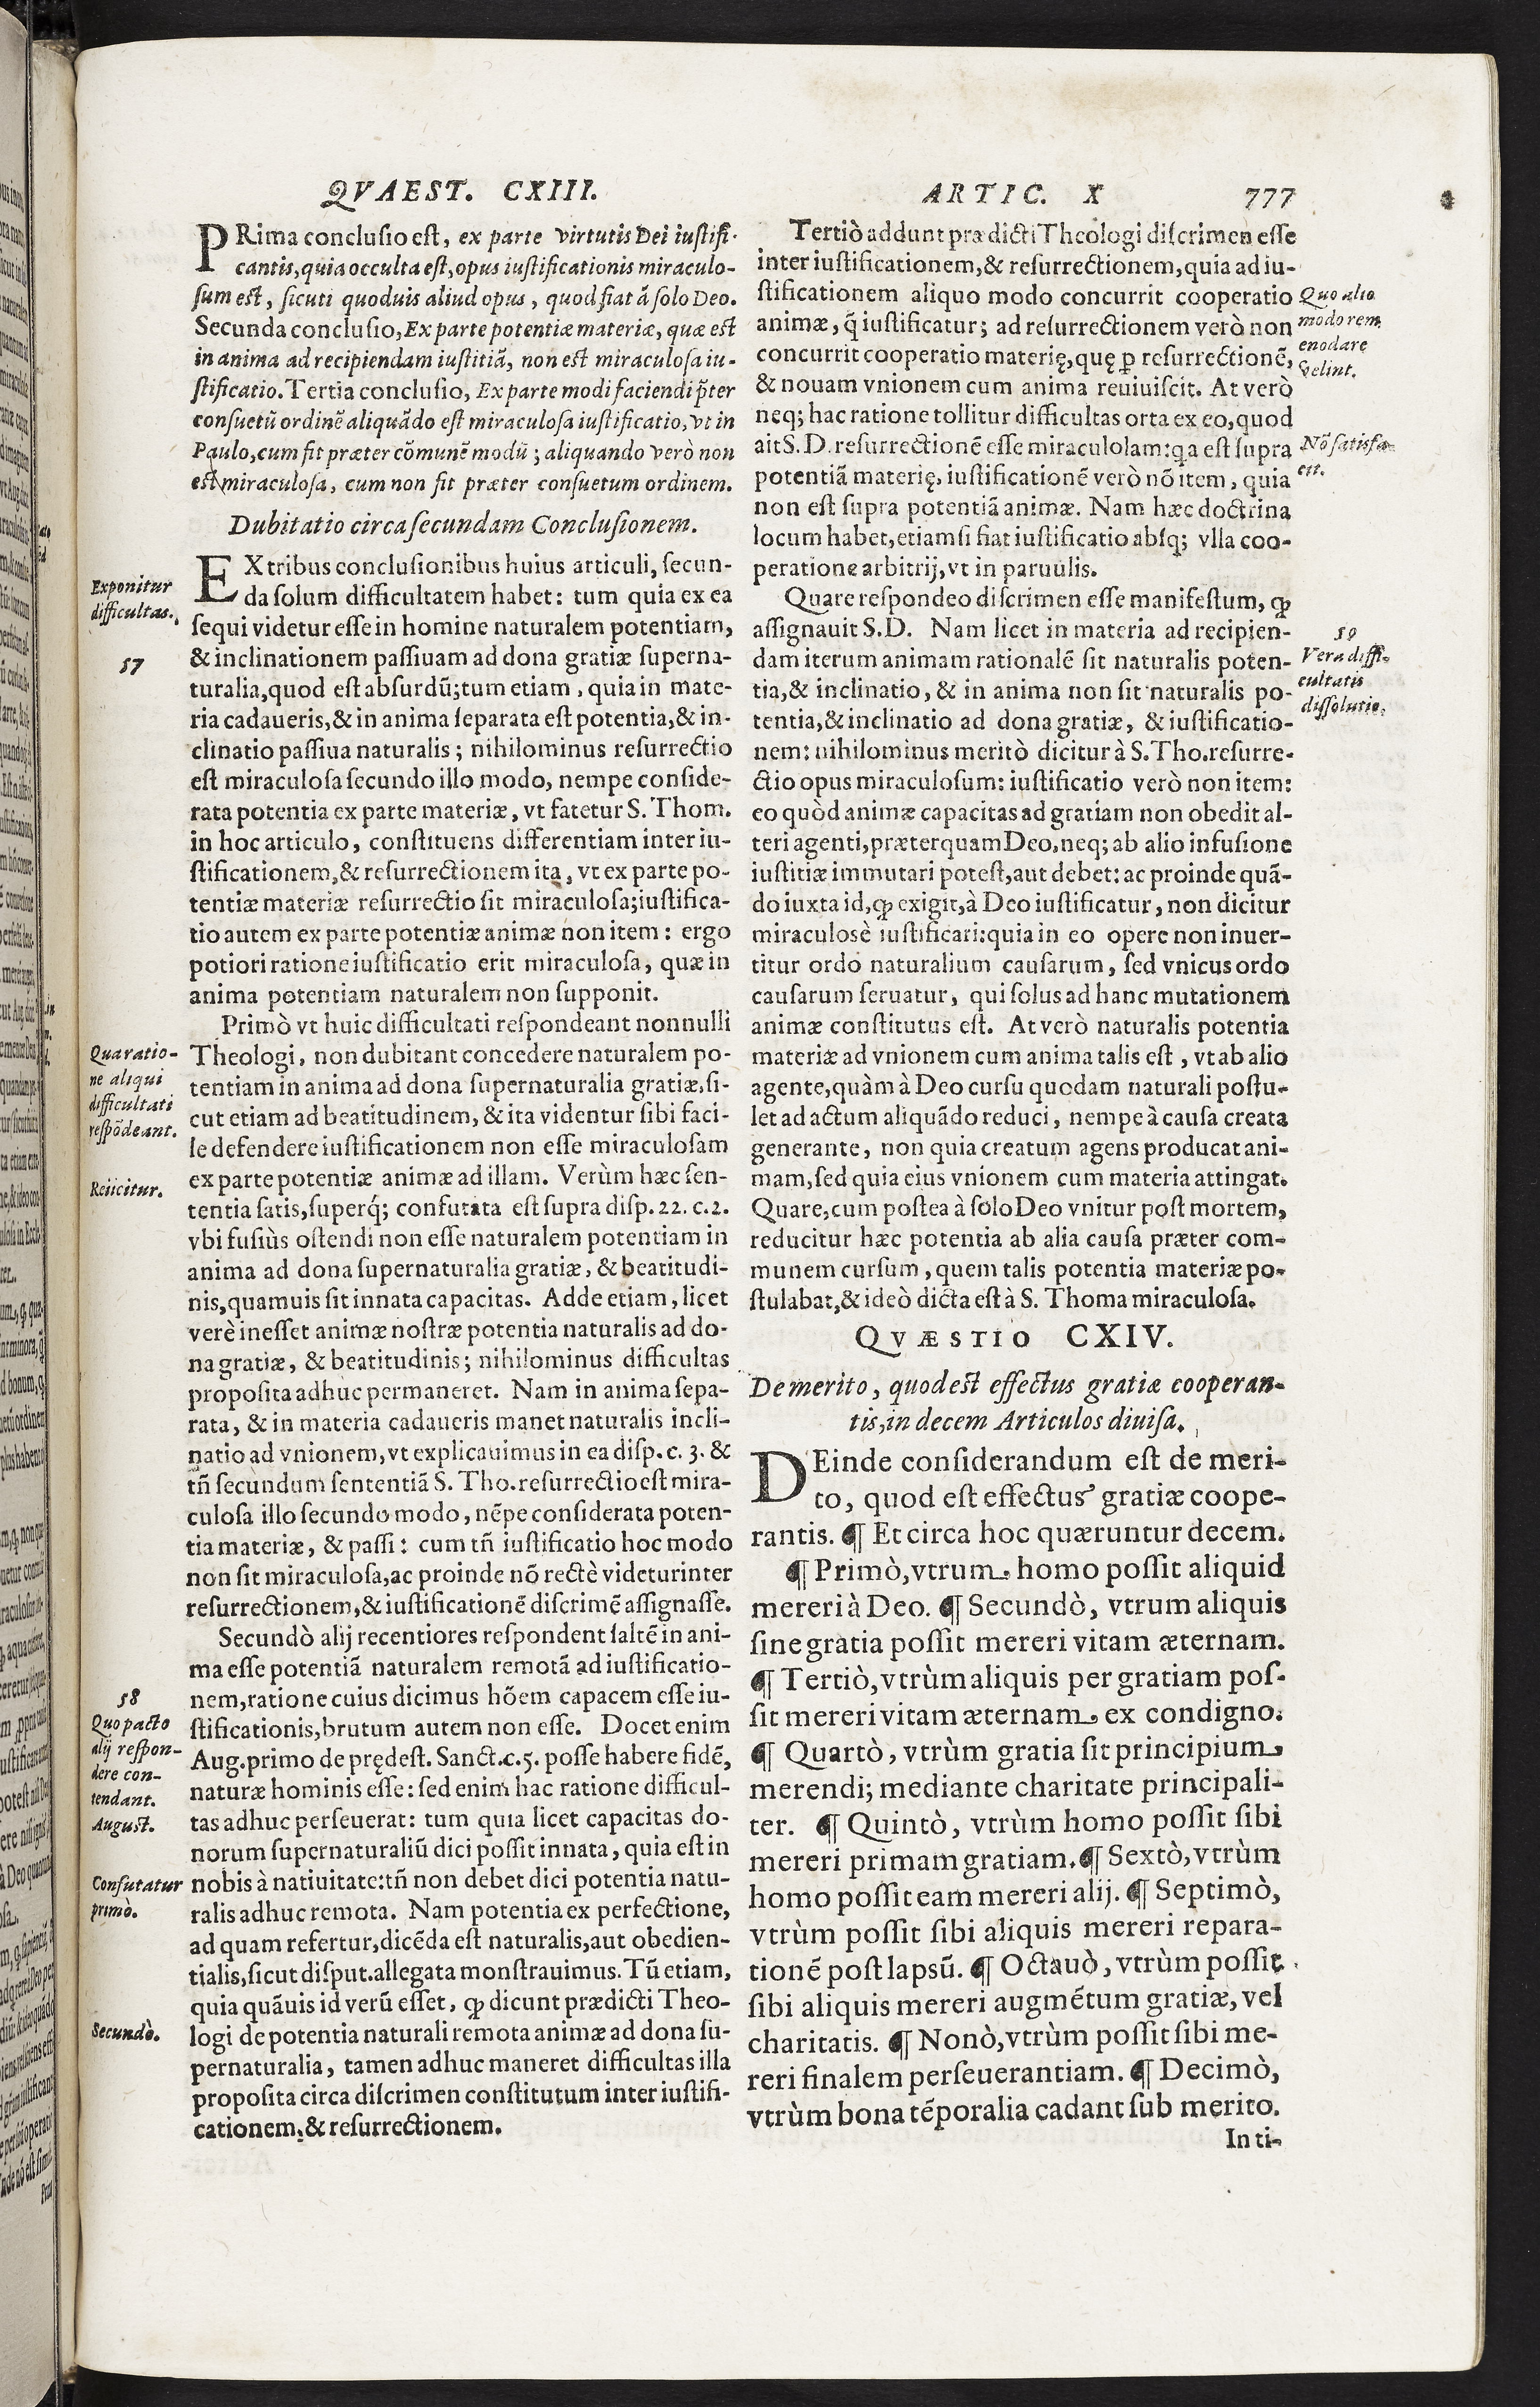 QVAEST. CXIII.
PRima conclusio est, ex parte virtutis Dei iustifi-
cantis, quia occulta est, opus iustificationis miraculo-
sum est, sicuti quoduis aliud opus, quod fiat á solo Deo.
Secunda conclusio, Ex parte potentiæ materiæ, quæ est
in anima ad recipiendam iustitiã, non est miraculosa iu-
stificatio. Tertia conclusio, Ex parte modi faciendi p̃ter
consuetũ ordinẽ aliquãdo est miraculosa iustificatio, vt in
Paulo, cum fit præter cõmunẽ modũ; aliquando verò non
est miraculosa, cum non fit præter consuetum ordinem.
Dubitatio circa secundam Conclusionem.
EX tribus conclusionibus huius articuli, secun-
da solum difficultatem habet: tum quia ex ea
sequi videtur esse in homine naturalem potentiam,
& inclinationem passiuam ad dona gratiæ superna-
turalia, quod est absurdũ; tum etiam, quia in mate-
ria cadaueris, & in anima separata est potentia, & in-
clinatio passiua naturalis; nihilominus resurrectio
est miraculosa secundo illo modo, nempe conside-
rata potentia ex parte materiæ, vt fatetur S. Thom.
in hoc articulo, constituens differentiam inter iu-
stificationem, & resurrectionem ita, vt ex parte po-
tentiæ materiæ resurrectio sit miraculosa; iustifica-
tio autem ex parte potentiæ animæ non item: ergo
potiori ratione iustificatio erit miraculosa, quæ in
anima potentiam naturalem non supponit.
Primò vt huic difficultati respondeant nonnulli
Theologi, non dubitant concedere naturalem po-
tentiam in anima ad dona supernaturalia gratiæ, si-
cut etiam ad beatitudinem, & ita videntur sibi faci-
le defendere iustificationem non esse miraculosam
ex parte potentiæ animæ ad illam. Verùm hæc sen-
tentia satis, superq́; confutata est supra disp. 22. c. 2.
vbi fusiùs ostendi non esse naturalem potentiam in
anima ad dona supernaturalia gratiæ, & beatitudi-
nis, quamuis sit innata capacitas. Adde etiam, licet
verè inesset animæ nostræ potentia naturalis ad do-
na gratiæ, & beatitudinis; nihilominus difficultas
proposita adhuc permaneret. Nam in anima sepa-
rata, & in materia cadaueris manet naturalis incli-
natio ad vnionem, vt explicauimus in ea disp. c. 3. &
tñ secundum sententiã S. Tho. resurrectio est mira-
culosa illo secundo modo, nẽpe considerata poten-
tia materiæ, & passi: cum tñ iustificatio hoc modo
non sit miraculosa, ac proinde nõ rectè videtur inter
resurrectionem, & iustificationẽ discrimẽ assignasse.
Secundò alij recentiores respondent saltẽ in ani-
ma esse potentiã naturalem remotã ad iustificatio-
nem, ratione cuius dicimus hõem capacem esse iu-
stificationis, brutum autem non esse. Docet enim
Aug. primo de prędest. Sanct. c. 5. posse habere fidẽ,
naturæ hominis esse: sed enim hac ratione difficul-
tas adhuc perseuerat: tum quia licet capacitas do-
norum supernaturaliũ dici possit innata, quia est in
nobis à natiuitate: tñ non debet dici potentia natu-
ralis adhuc remota. Nam potentia ex perfectione,
ad quam refertur, dicẽda est naturalis, aut obedien-
tialis, sicut disput. allegata monstrauimus. Tũ etiam,
quia quãuis id verũ esset, ꝙ dicunt prædicti Theo-
logi de potentia naturali remota animæ ad dona su-
pernaturalia, tamen adhuc maneret difficultas illa
proposita circa discrimen constitutum inter iustifi-
cationem, & resurrectionem.
Exponitur
difficultas.
57
Qua ratio-
ne aliqui
difficultati
respõdeant.
Reiicitur.
58
Quo pacto
alij respon-
dere con-
tendant.
August.
Confutatur
primò.
Secundò.
ARTIC. X 777
Tertiò addunt prædicti Theologi discrimen esse
inter iustificationem, & resurrectionem, quia ad iu-
stificationem aliquo modo concurrit cooperatio
animæ, q̃ iustificatur; ad resurrectionem verò non
concurrit cooperatio materię, quę ꝑ resurrectionẽ,
& nouam vnionem cum anima reuiuiscit. At verò
neq; hac ratione tollitur difficultas orta ex eo, quod
ait S. D. resurrectionẽ esse miraculosam: qa est supra
potentiã materię, iustificationẽ verò nõ item, quia
non est supra potentiã animæ. Nam hæc doctrina
locum habet, etiamsi fiat iustificatio absq; vlla coo-
peratione arbitrij, vt in paruulis.
Quare respondeo discrimen esse manifestum, ꝙ
assignauit S. D. Nam licet in materia ad recipien-
dam iterum animam rationalẽ sit naturalis poten-
tia, & inclinatio, & in anima non sit naturalis po-
tentia, & inclinatio ad dona gratiæ, & iustificatio-
nem: nihilominus meritò dicitur à S. Tho. resurre-
ctio opus miraculosum: iustificatio verò non item:
eo quòd animæ capacitas ad gratiam non obedit al-
teri agenti, præterquam Deo, neq; ab alio infusione
iustitiæ immutari potest, aut debet: ac proinde quã-
do iuxta id, ꝙ exigit, à Deo iustificatur, non dicitur
miraculosè iustificari: quia in eo opere non inuer-
titur ordo naturalium causarum, sed vnicus ordo
causarum seruatur, qui solus ad hanc mutationem
animæ constitutus est. At verò naturalis potentia
materiæ ad vnionem cum anima talis est, vt ab alio
agente, quàm à Deo cursu quodam naturali postu-
let ad actum aliquãdo reduci, nempe à causa creata
generante, non quia creatum agens producat ani-
mam, sed quia eius vnionem cum materia attingat.
Quare, cum postea à solo Deo vnitur post mortem,
reducitur hæc potentia ab alia causa præter com-
munem cursum, quem talis potentia materiæ po-
stulabat, & ideò dicta est à S. Thoma miraculosa.
QVÆSTIO CXIV.
De merito, quod est effectus gratiæ cooperan-
tis, in decem Articulos diuisa.
DEinde considerandum est de meri-
to, quod est effectus gratiæ coope-
rantis. ¶ Et circa hoc quæruntur decem.
¶ Primò, vtrum homo possit aliquid
mereri à Deo. ¶ Secundò, vtrum aliquis
sine gratia possit mereri vitam æternam.
¶ Tertiò, vtrùm aliquis per gratiam pos-
sit mereri vitam æternam ex condigno.
¶ Quartò, vtrùm gratia sit principium
merendi; mediante charitate principali-
ter. ¶ Quintò, vtrùm homo possit sibi
mereri primam gratiam. ¶ Sextò, vtrùm
homo possit eam mereri alij. ¶ Septimò,
vtrùm possit sibi aliquis mereri repara-
tionẽ post lapsũ. ¶ Octauò, vtrùm possit
sibi aliquis mereri augmẽtum gratiæ, vel
charitatis. ¶ Nonò, vtrùm possit sibi me-
reri finalem perseuerantiam. ¶ Decimò,
vtrùm bona tẽporalia cadant sub merito.
In ti-
Quo alio
modo rem
enodare
velint.
Nõ satisfa-
cit.
59
Vera diffi-
cultatis
dissolutio.